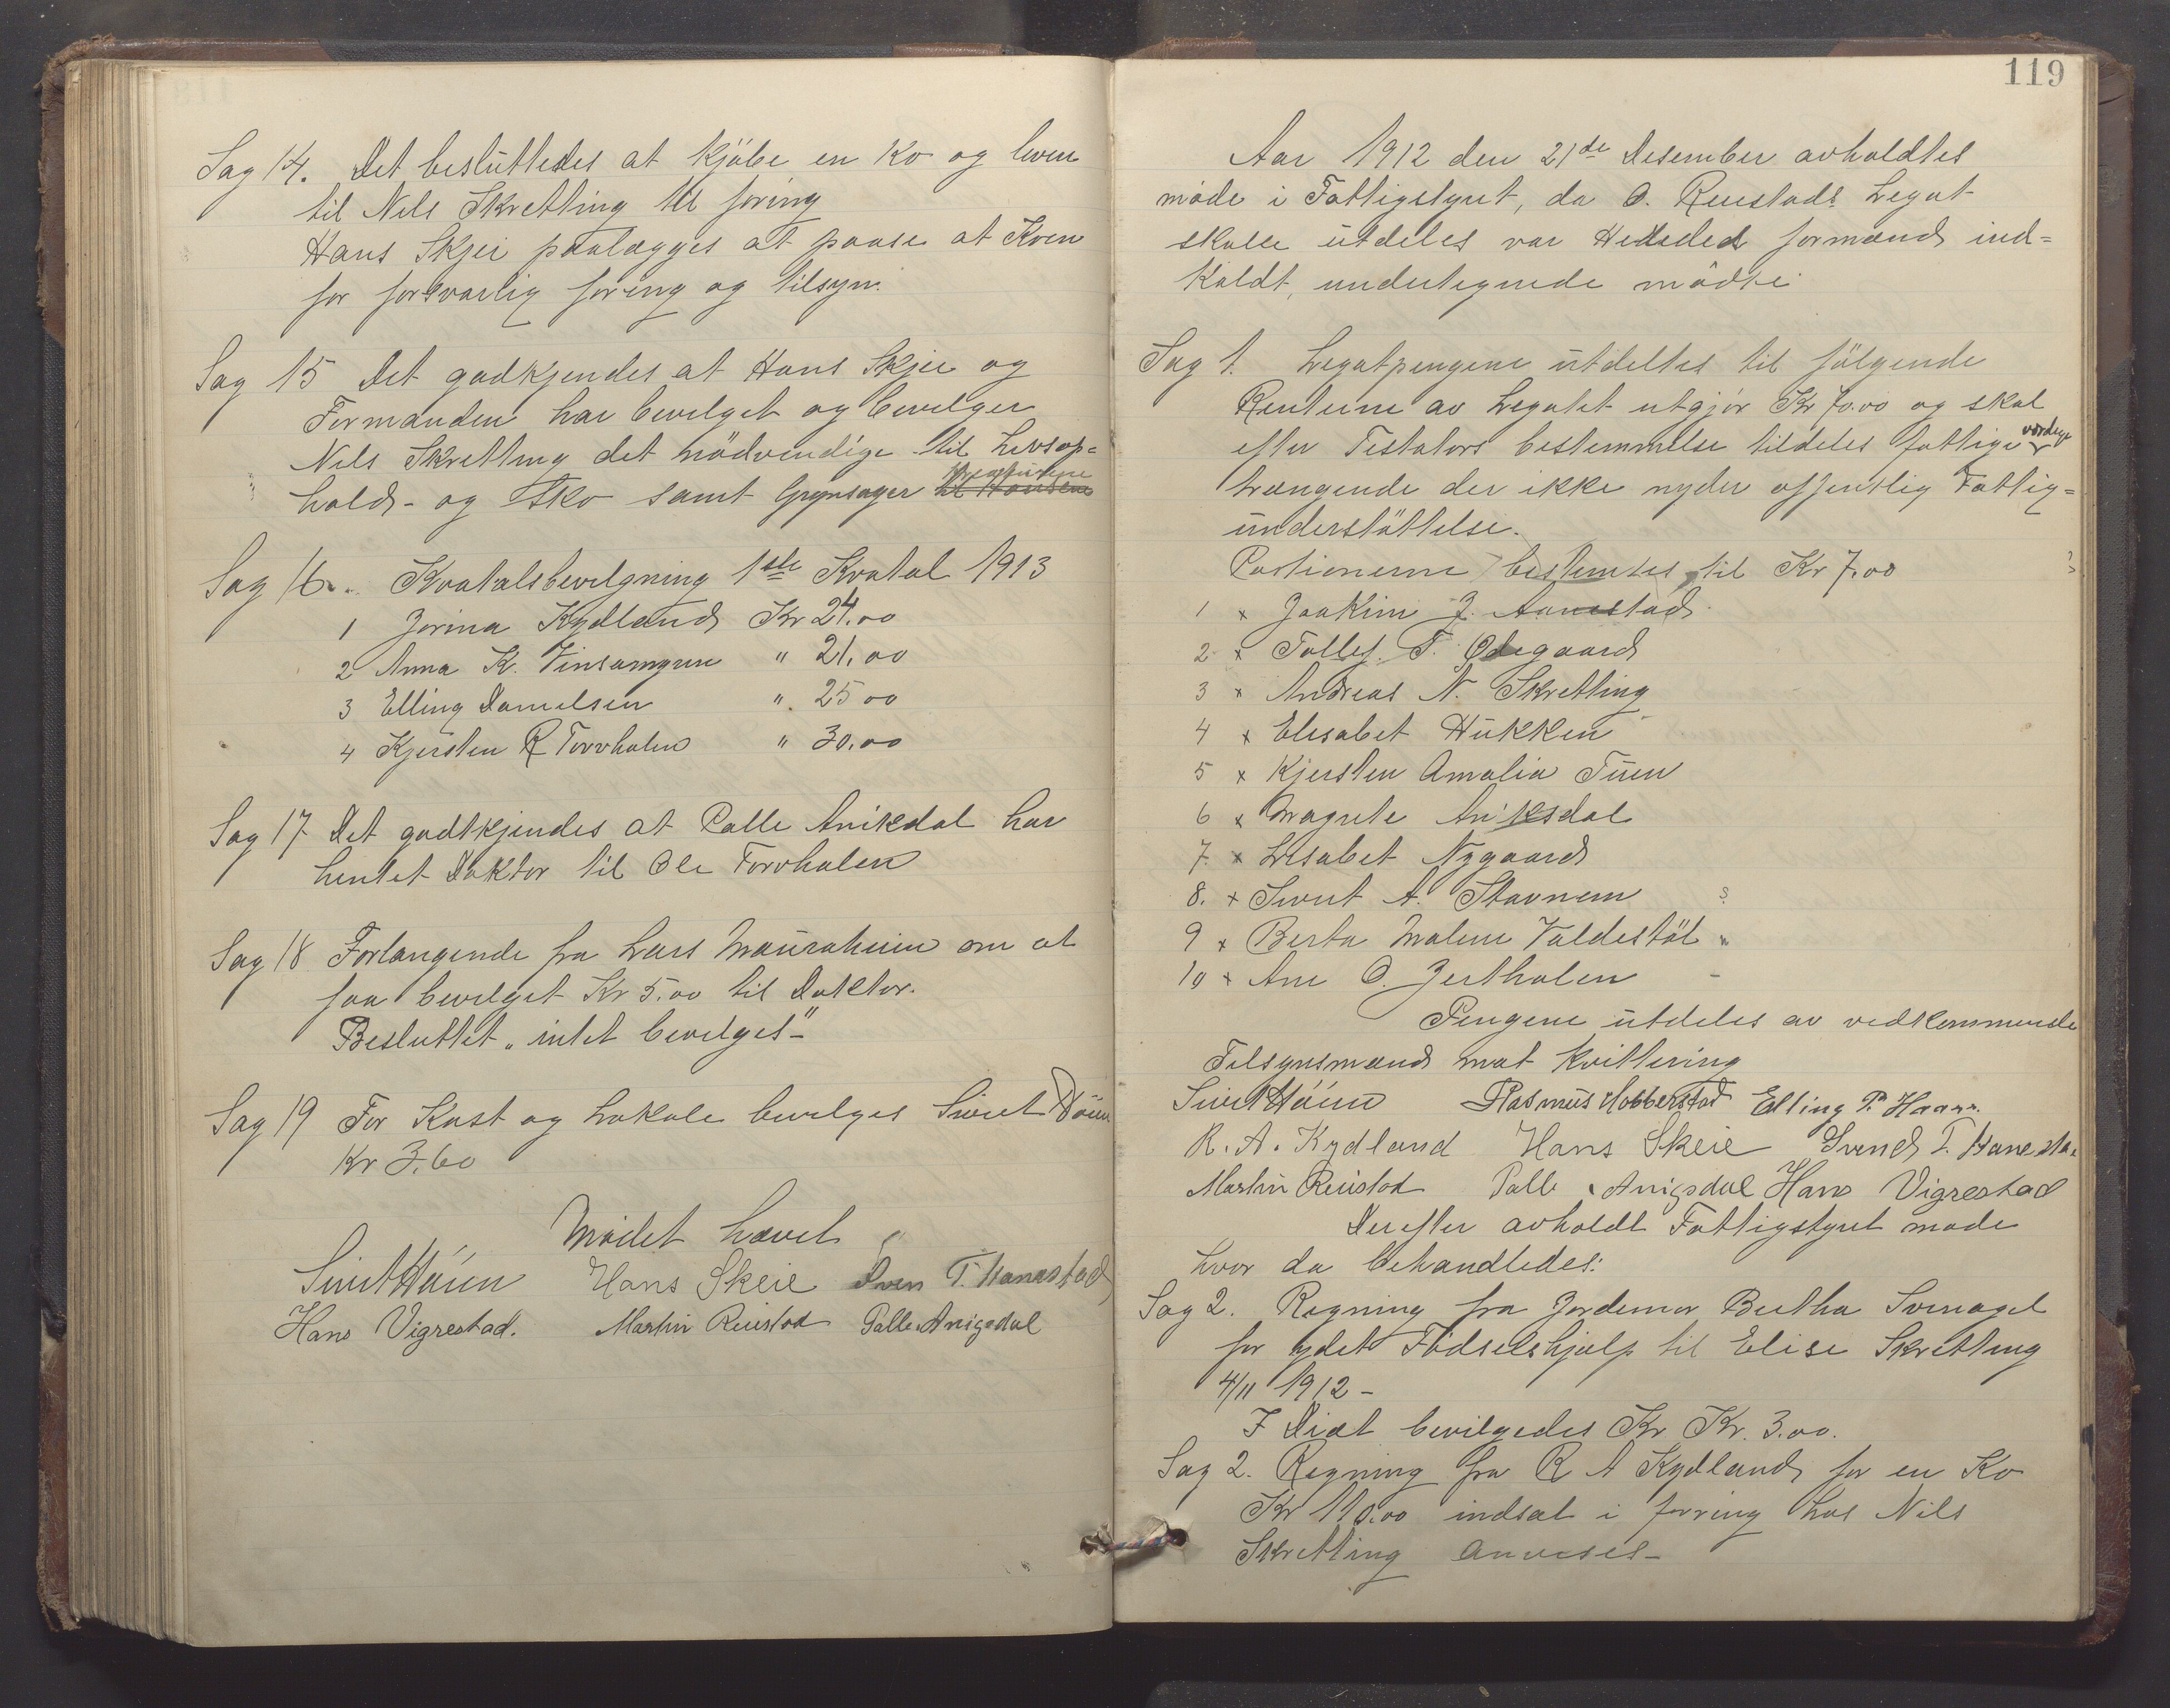 Sag 14. Det besluttedes at kjöbe en Ko og leven
til Nils Skretting til foring
Hans Skjei paalægges at paase at Koen
for forsvarlig foring og tilsyn.
Sag 15 Det godkjendes at Hans Skjei og
Formanden har bevilget og bevilger
Nils Skretting det nödvendige til Livsop=
hold- og Sko samt Grynsager til Kreaturene
Sag 16. Kvatalsbevilgning 1ste Kvatal 1913
1 Jorina Kydland Kr 24.00
2 Anna K. Vinsamyren " 21.00
3 Elling Danielsen " 25 00
4 Kjersten R Torvhalen " 30.00
Sag 17 Det godtkjendes at Palle Anikdal har
hentet Doktor til Ole Torvhalen
Sag 18 Forlangende fra Lars Mauraheim om at
faa bevilget Kr 5.00 til Doktor.
Besluttet "intet bevilges"-
Sag 19 For Kost og Lokale bevilges Sivert Höien
Kr 3.60
Mödet hævet
Sivert Höien Hans Skeie Sven T. Hanestad
Hans Vigrestad. Martin Reiestad Palle Anigsdal
119
Aar 1912 den 21de Desember avholdtes
möde i Fattigstyret, da O. Reiestads Legat
skulle utdeles var Herreded formænd ind=
kaldt, undertegnede mödte:
Sag 1. Legatpengene utdeltes til fölgende
Renterne av Legatet utgjör Kr 70.00 og skal
efter Testators bestemmelse tildeles fattige værdige
trængende der ikke nyder offentlig Fattig=
understöttelse.
Portionerne bestemtes til Kr 7.00
1 x Joakim J. Aanestad
2 x Tollef. T. Ödegaard
3 x Andreas N. Skretting
4 x Elisabet Hukken
5 x Kjersten Amalia Tuen
6 x Magrete Aniksdal
7. x Lisabet Nygaard
8. x Sivert A. Stavnem
9 x Berta Malene Valdestöl "
10 x Ane O. Jerthalen -
Pengene utdeles av vedkommende
Tilsynsmænd mot kvittering
Sivert Höien Rasmus Hobberstad Elling P. Haar.
R. A. Kydland Hans Skeie Svend T. Hanesta.
Martin Reiestad Palle Anigsdal Hans Vigrestad
Derefter avholdt Fattigstyret möde
hvor da behandledes:
Sag 2. Regning fra Jordemor Bertha Svenagel
for ydet Födselshjælp til Elise Skretting
4/11 1912 -
I Diæt bevilgedes Kr Kr. 3.00.
Sag 2. Regning fra R A Kydland for en Ko
Kr 110.00 indsat i forring hos Nils
Skretting anvises-